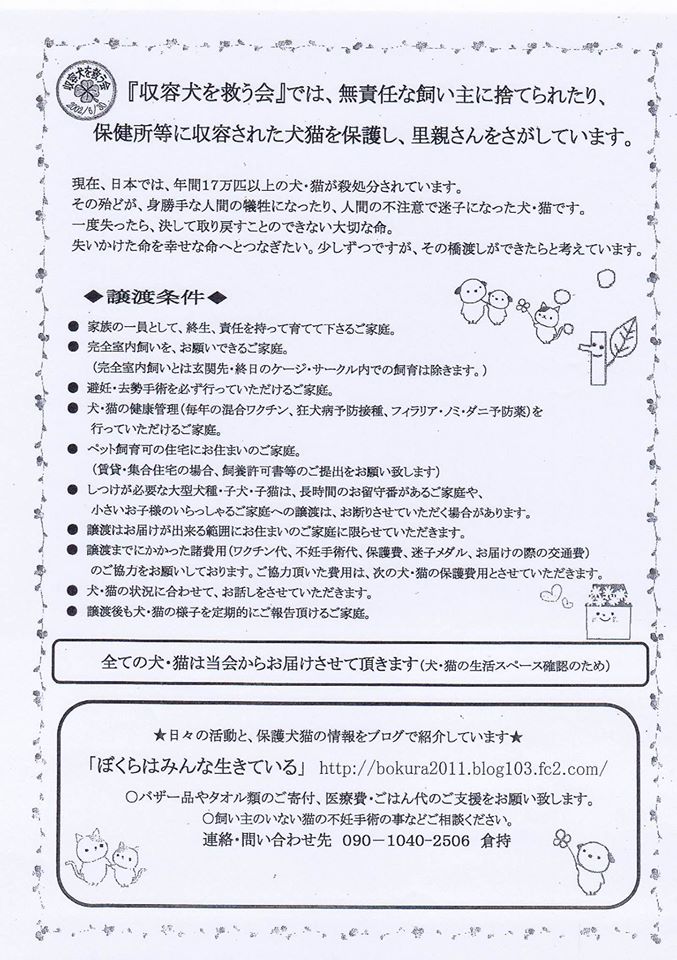 収容犬を救う会
2002/6/30
『収容犬を救う会』では、無責任な飼い主に捨てられたり、
保健所等に収容された犬猫を保護し、里親さんをさがしています。
現在、日本では、年間17万匹以上の犬・猫が殺処分されています。
その殆どが、身勝手な人間の犠牲になったり、人間の不注意で迷子になった犬・猫です。
一度失ったら、決して取り戻すことのできない大切な命。
失いかけた命を幸せな命へとつなぎたい。少しずつですが、その橋渡しができたらと考えています。
◆譲渡条件◆
● 家族の一員として、終生、責任を持って育てて下さるご家庭。
● 完全室内飼いを、お願いできるご家庭。
（完全室内飼いとは玄関先・終日のケージ・サークル内での飼育は除きます。）
● 避妊・去勢手術を必ず行っていただけるご家庭。
● 犬・猫の健康管理（毎年の混合ワクチン、狂犬病予防接種、フィラリア・ノミ・ダニ予防薬）を
行っていただけるご家庭。
● ペット飼育可の住宅にお住まいのご家庭。
（賃貸・集合住宅の場合、飼養許可書等のご提出をお願い致します）
● しつけが必要な大型犬種・子犬・子猫は、長時間のお留守番があるご家庭や、
小さいお子様のいらっしゃるご家庭への譲渡は、お断りさせていただく場合があります。
● 譲渡はお届けが出来る範囲にお住まいのご家庭に限らせていただきます。
● 譲渡までにかかった諸費用（ワクチン代、不妊手術代、保護費、迷子メダル、お届けの際の交通費）
のご協力をお願いしております。ご協力頂いた費用は、次の犬・猫の保護費用とさせていただきます。
● 犬・猫の状況に合わせて、お話しをさせていただきます。
● 譲渡後も犬・猫の様子を定期的にご報告頂けるご家庭。
全ての犬・猫は当会からお届けさせて頂きます（犬・猫の生活スペース確認のため）
★日々の活動と、保護犬猫の情報をブログで紹介しています★
「ぼくらはみんな生きている」 http://bokura2011.blog103.fc2.com/
○バザー品やタオル類のご寄付、医療費・ごはん代のご支援をお願い致します。
○飼い主のいない猫の不妊手術の事などご相談ください。
連絡・問い合わせ先 090－1040-2506 倉持